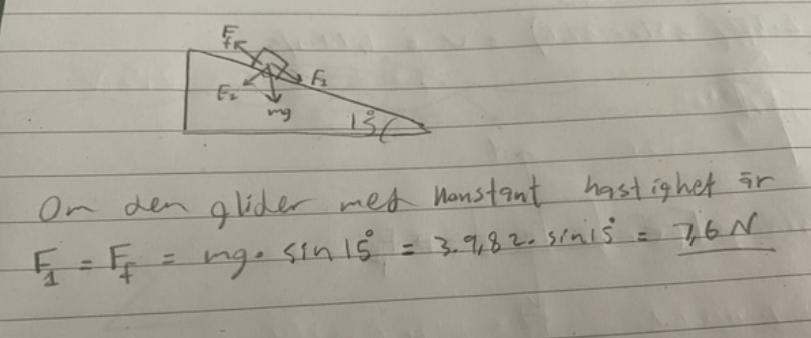 Ff
F1
F2
mg
15°
Om den glider med konstant hastighet är
F1 = Ff = mg · sin 15° = 3·9,82· sin15° = 7,6 N